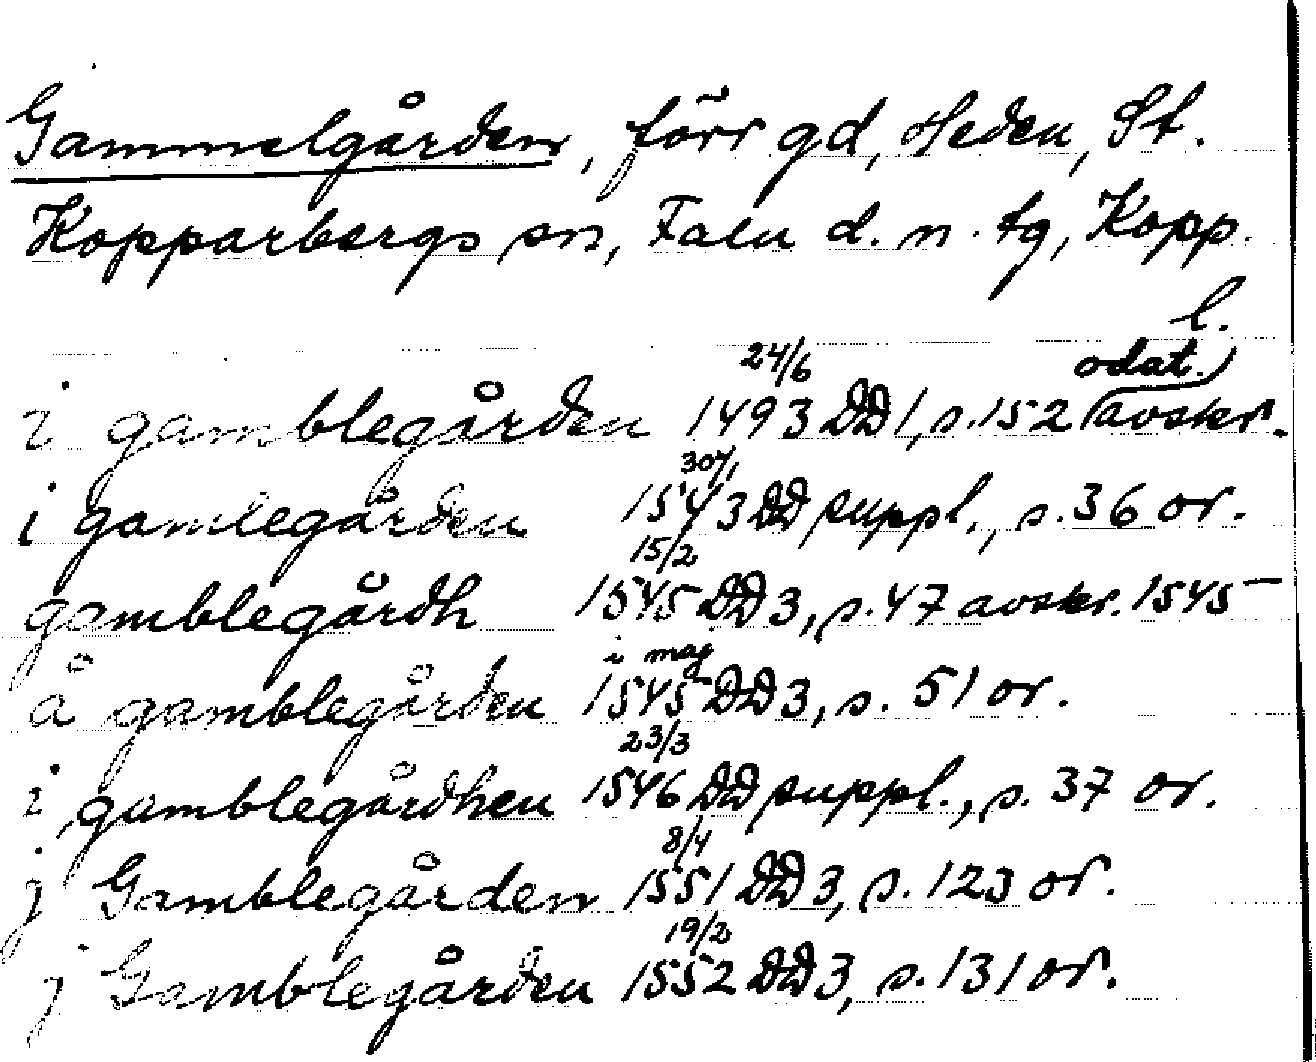 Gammelgården, förr gd, Heden, St.
Kopparbergs sn, Falu d. n. tg, Kopp.
l.
i gamblegården 24/6 1493 DD 1, s. 152 (avskr. odat.)
i gamlegården 30/1 1543 DD suppl., s. 36 or.
gamblegårdh 15/2 1545 DD 3, s. 47 avskr. 1545
å gamblegården i maj 1545 DD 3, s. 51 or.
i gamblegårdhen 23/3 1546 DD suppl., s. 37 or.
j Gamblegården 8/4 1551 DD 3, s. 123 or.
j Gamblegården 19/2 1552 DD 3, s. 131 or.